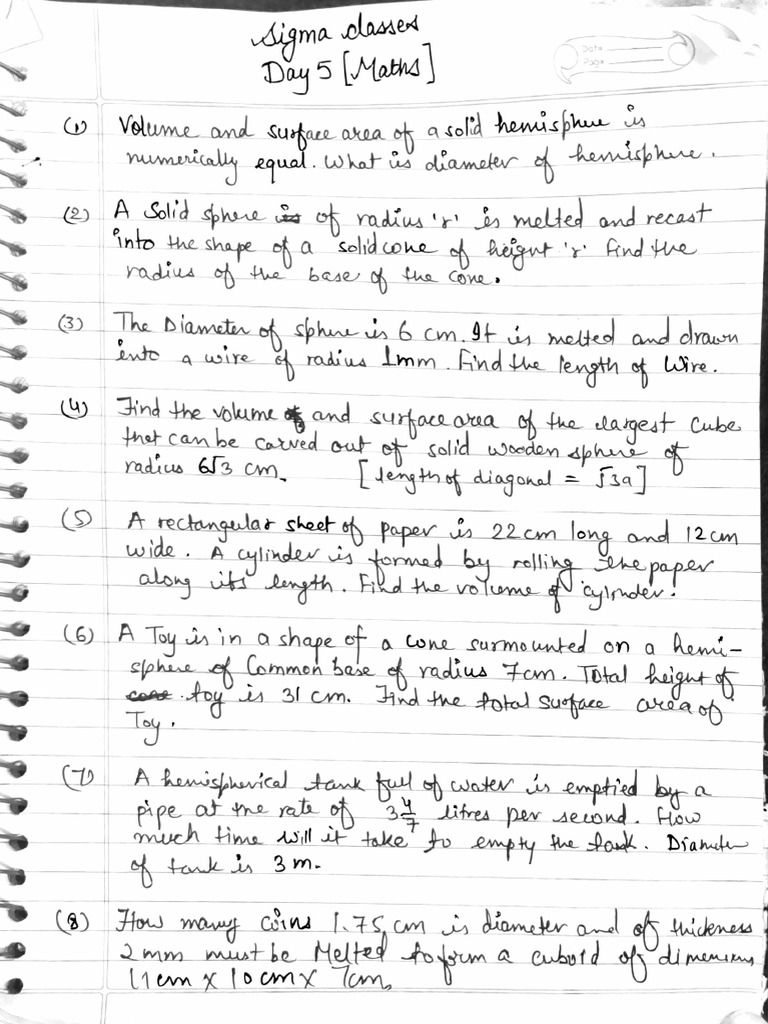 Sigma classes
Day 5 [Maths]
Date
Page
(1) Volume and surface area of a solid hemisphere is
numerically equal. What is diameter of hemisphere.
(2) A Solid sphere is of radius 'r' is melted and recast
into the shape of a solid cone of height 'r' find the
radius of the base of the cone.
(3) The Diameter of sphere is 6 cm. It is melted and drawn
into a wire of radius 1mm. Find the length of Wire.
(4) Find the volume and surface area of the largest Cube
that can be carved out of solid wooden sphere of
radius 6√3 cm. [length of diagonal = √3a]
(5) A rectangular sheet of paper is 22 cm long and 12 cm
wide. A cylinder is formed by rolling the paper
along its length. Find the volume of cylinder.
(6) A Toy is in a shape of a cone surmounted on a hemi-
sphere of Common base of radius 7cm. Total height of
cone toy is 31 cm. Find the total surface area of
Toy.
(7) A hemispherical tank full of water is emptied by a
pipe at the rate of 3 4/7 litres per second. How
much time will it take to empty the tank. Diameter
of tank is 3 m.
(8) How many coins 1.75 cm is diameter and of thickness
2 mm must be Melted to form a cuboid of dimensions
11 cm x 10 cm x 7cm.